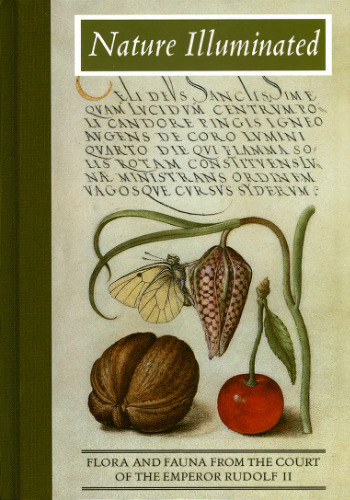 Nature Illuminated
CELI DEVS SANCTISSIME
QVAM LVCIDVM CENTRVM PO
LI CANDORE PINGIS IGNEO
AVGENS DECORO LVMINI
QVARTO DIE QVI FLAMMA SO
LIS ROTAM CONSTITVENS LV
NÆ MINISTRANS ORDINEM
VAGOSQVE CVRSVS SYDERVM:
FLORA AND FAUNA FROM THE COURT
OF THE EMPEROR RUDOLF II